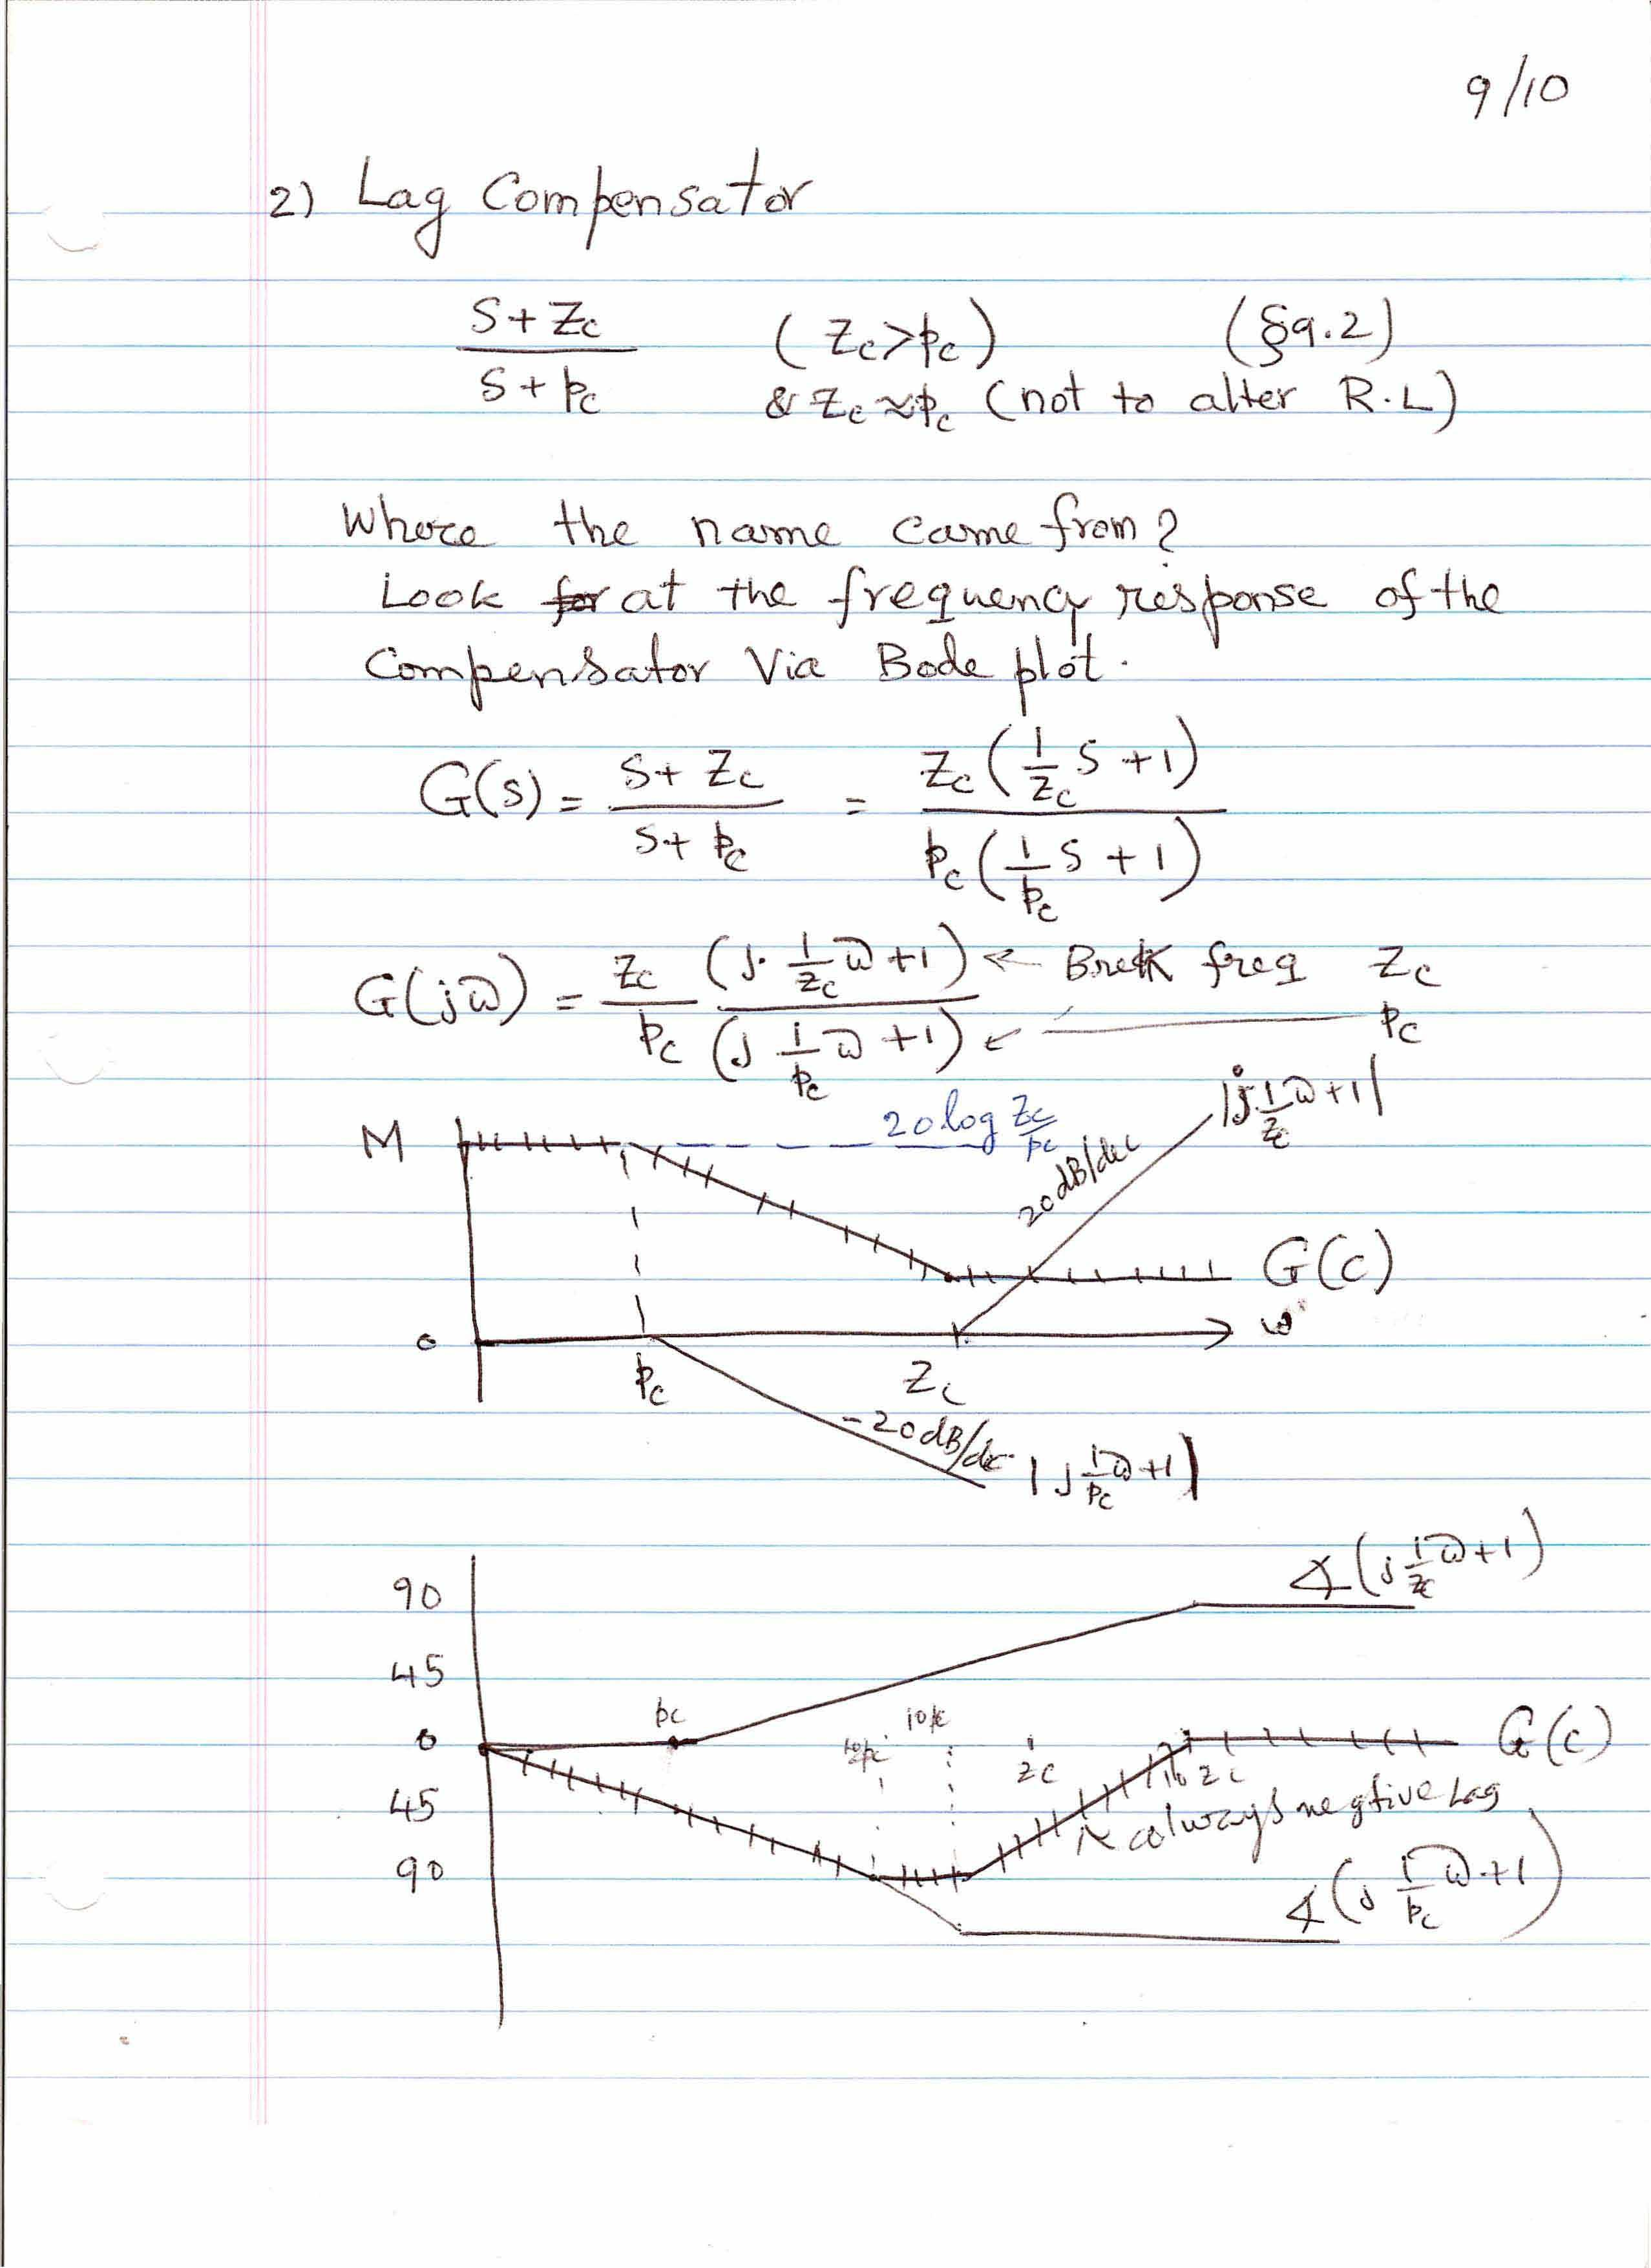 9/10
2) Lag Compensator
S+Zc / S+pc (Zc>pc) (§9.2)
& Zc≈pc (not to alter R.L)
Where the name came from?
Look for at the frequency response of the
Compensator Via Bode plot.
G(s) = S+Zc / S+pc = Zc(1/Zc S+1) / pc(1/pc S+1)
G(jω) = Zc/pc (j 1/Zc ω+1) / (j 1/pc ω+1) ← Break freq Zc
← pc
|j 1/Zc ω+1|
M 20 log Zc/pc
20dB/dec
G(c)
0 ω
pc Zc
-20dB/dec |j 1/pc ω+1|
90 ∡(j 1/Zc ω+1)
45
pc 10pc
0 G(c)
Zc 10 Zc
45 always negtive Lag
90 ∡(j 1/pc ω+1)